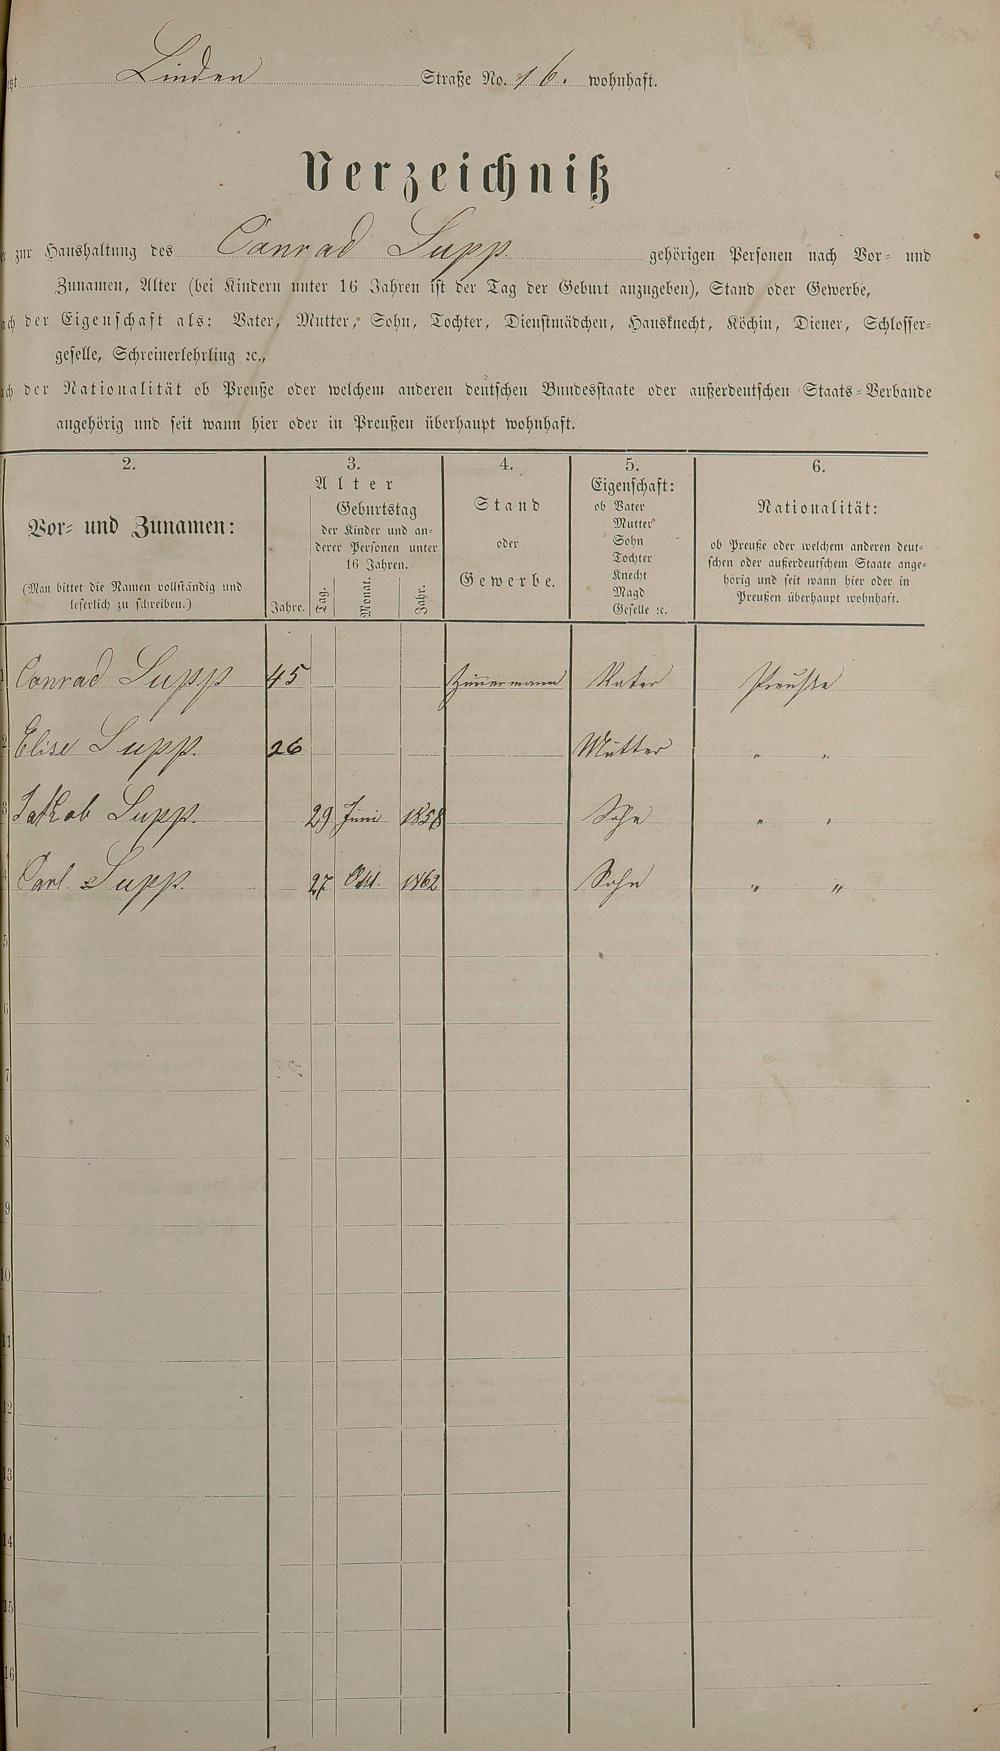 Linden Straße No. 16. wohnhaft.
Verzeichniß
zur Haushaltung des Conrad Supp gehörigen Personen nach Vor- und
Zunamen, Alter (bei Kindern unter 16 Jahren ist der Tag der Geburt anzugeben), Stand oder Gewerbe,
der Eigenschaft als: Vater, Mutter, Sohn, Tochter, Dienstmädchen, Hausknecht, Köchin, Diener, Schlosser-
geselle, Schreinerlehrling ꝛc.,
der Nationalität ob Preuße oder welchem anderen deutschen Bundesstaate oder außerdeutschen Staats-Verbande
angehörig und seit wann hier oder in Preußen überhaupt wohnhaft.
2.
Vor- und Zunamen:
(Man bittet die Namen vollständig und
leserlich zu schreiben.)
3.
Alter
Geburtstag
der Kinder und an-
derer Personen unter
16 Jahren.
Jahre. Tag. Monat. Jahr.
4.
Stand
oder
Gewerbe.
5.
Eigenschaft:
ob Vater
Mutter
Sohn
Tochter
Knecht
Magd
Geselle ꝛc.
6.
Nationalität:
ob Preuße oder welchem anderen deut-
schen oder außerdeutschem Staate ange-
hörig und seit wann hier oder in
Preußen überhaupt wohnhaft.
1 Conrad Supp 45 Zimmermann Vater Preuße
2 Elise Supp. 26 Mutter " "
3 Jakob Supp. 29 Juni 1858 Sohn " "
4 Carl Supp. 27 Okt. 1862 Sohn " "
5
6
7
8
9
10
11
12
13
14
15
16